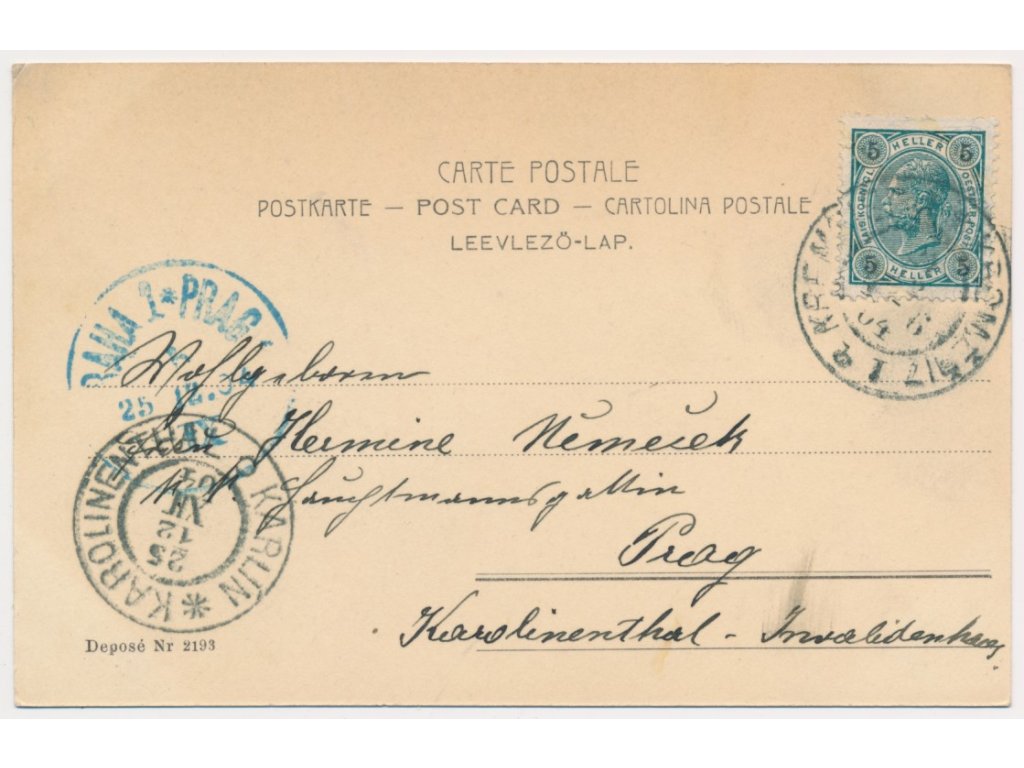 CARTE POSTALE
POSTKARTE — POST CARD — CARTOLINA POSTALE
LEEVLEZŐ-LAP.
5 HELLER 5
KAIS.KOENIGL. OESTERR.POST
5 HELLER 5
17 1
PRAHA 1 * PRAG
25
Wohlgeboren
Hermine Němeček
k. k. Hauptmannsgattin
Prag
Karolinenthal - Invalidenhaus.
KAROLINENTHAL KARLÍN
25
12
XII
04
Deposé Nr 2193